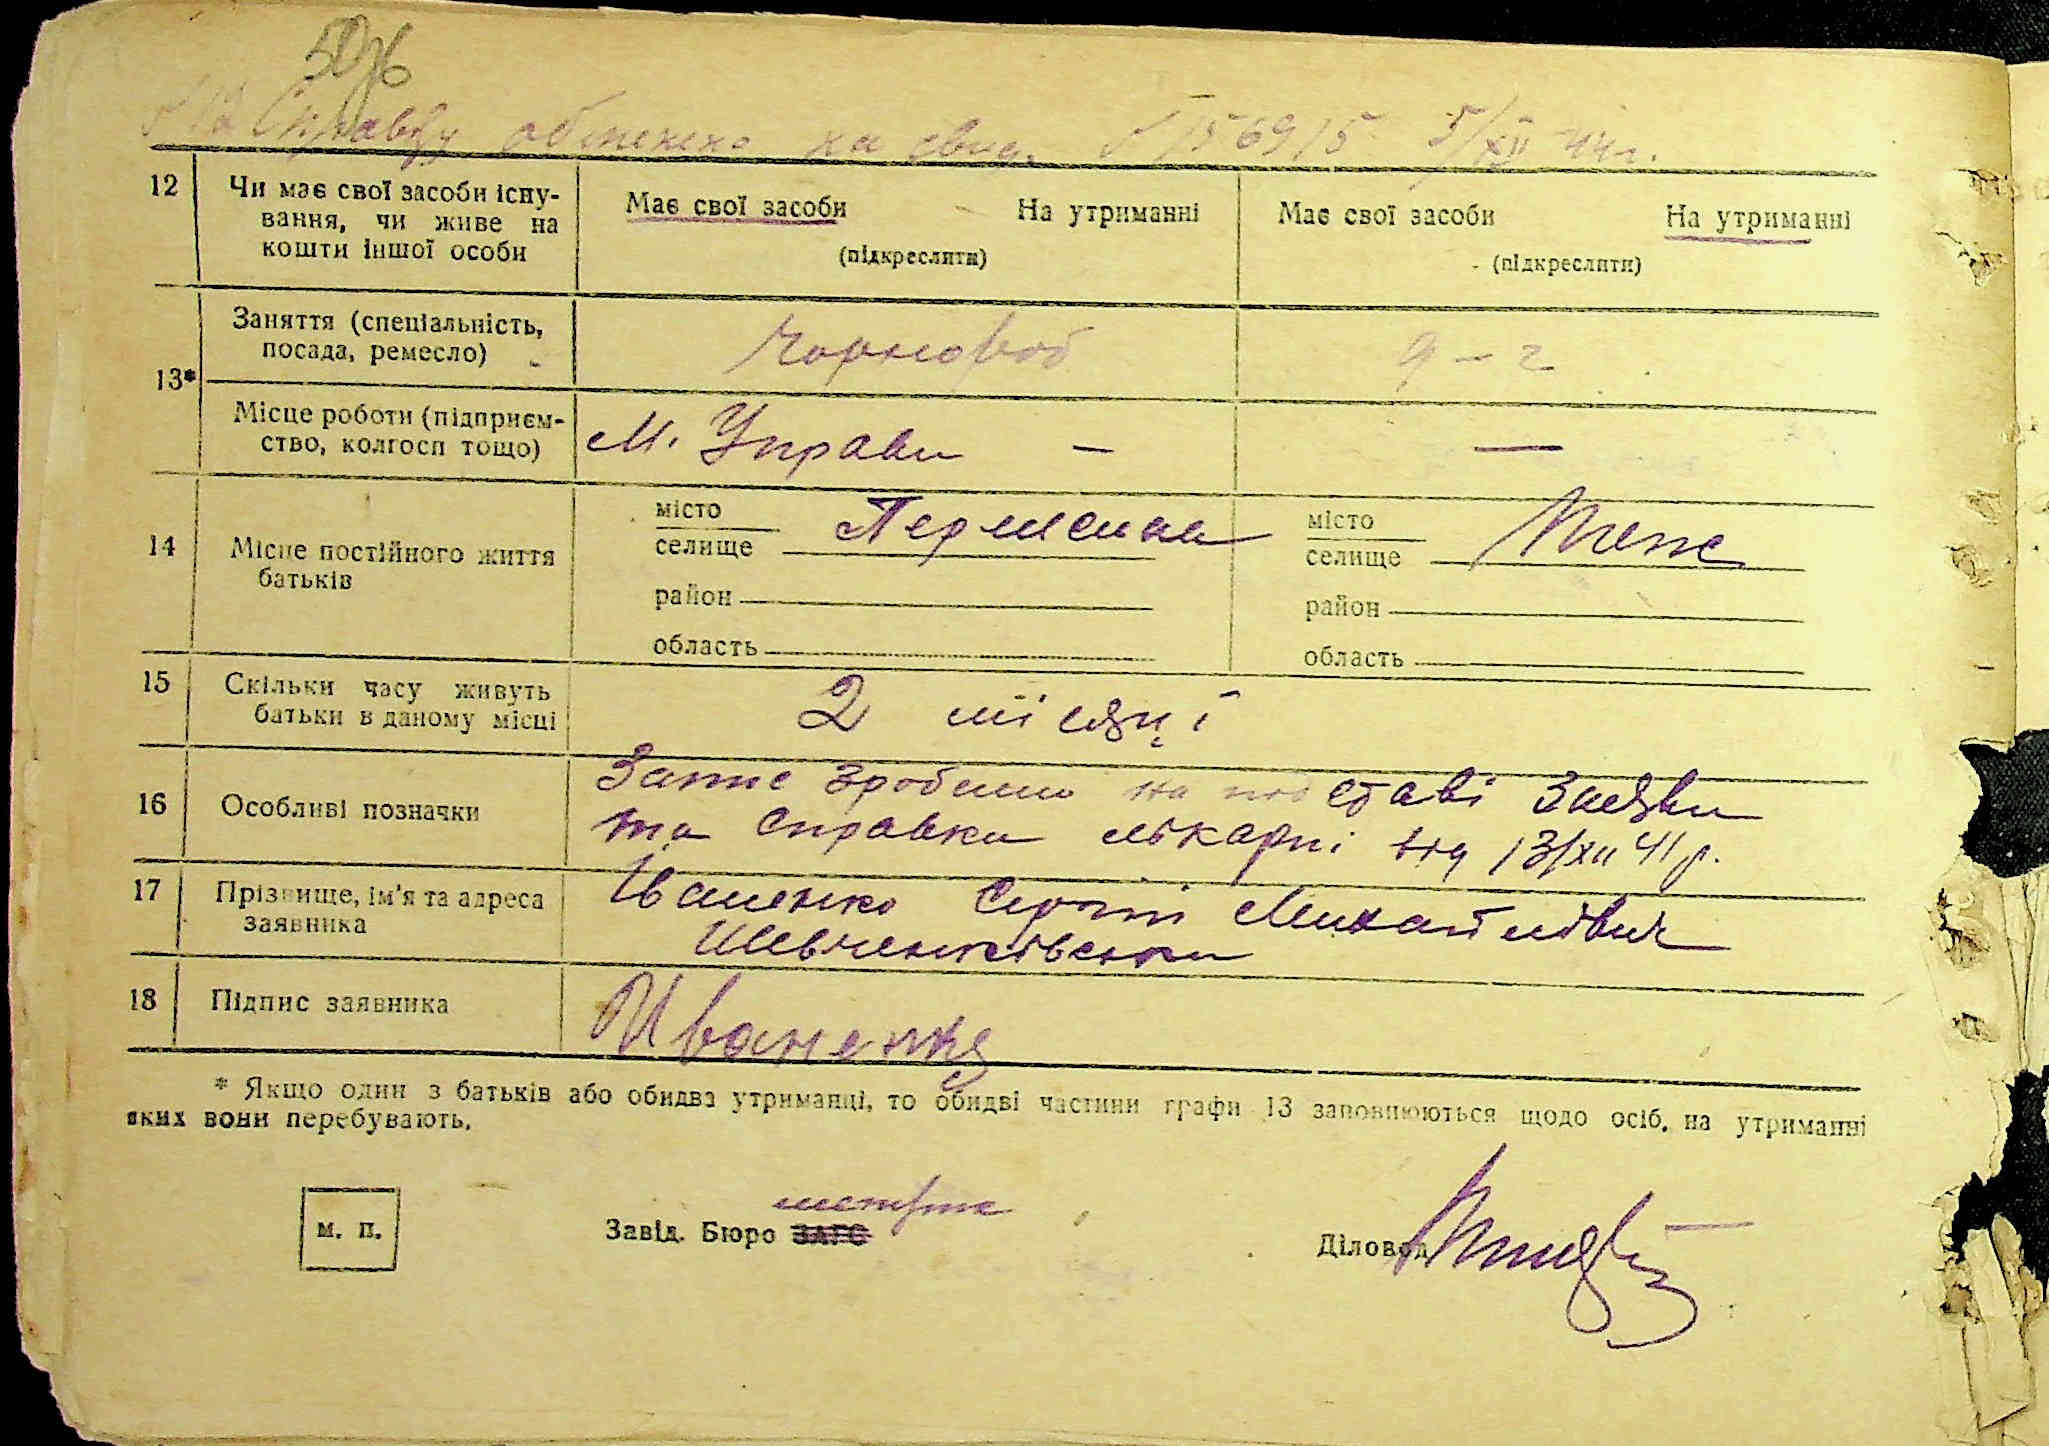 Справку обменено на свид. 5/XII 44 г.
12 Чи має свої засоби існування, чи живе на кошти іншої особи
Має свої засоби На утриманні
(підкреслити)
Має свої засоби На утриманні
(підкреслити)
13* Заняття (спеціальність, посада, ремесло)
Чорнороб
д - г
Місце роботи (підприємство, колгосп тощо)
М. Управи —
—
14 Місце постійного життя батьків
місто
селище
район
область
місто
селище
район
область
15 Скільки часу живуть батьки в даному місці
2 місяці
16 Особливі позначки
Запис зроблено на підставі Заяви
та Справки лікарні від 13/XII 41 р.
17 Прізвище, ім'я та адреса заявника
Іваненко Сергій Михайлович
Шевченківська
18 Підпис заявника
Иваненко
* Якщо один з батьків або обидва утриманці, то обидві частини графи 13 заповнюються щодо осіб, на утриманні
яких вони перебувають.
м. п.
метрик
Завід. Бюро ЗАГС
Діловод